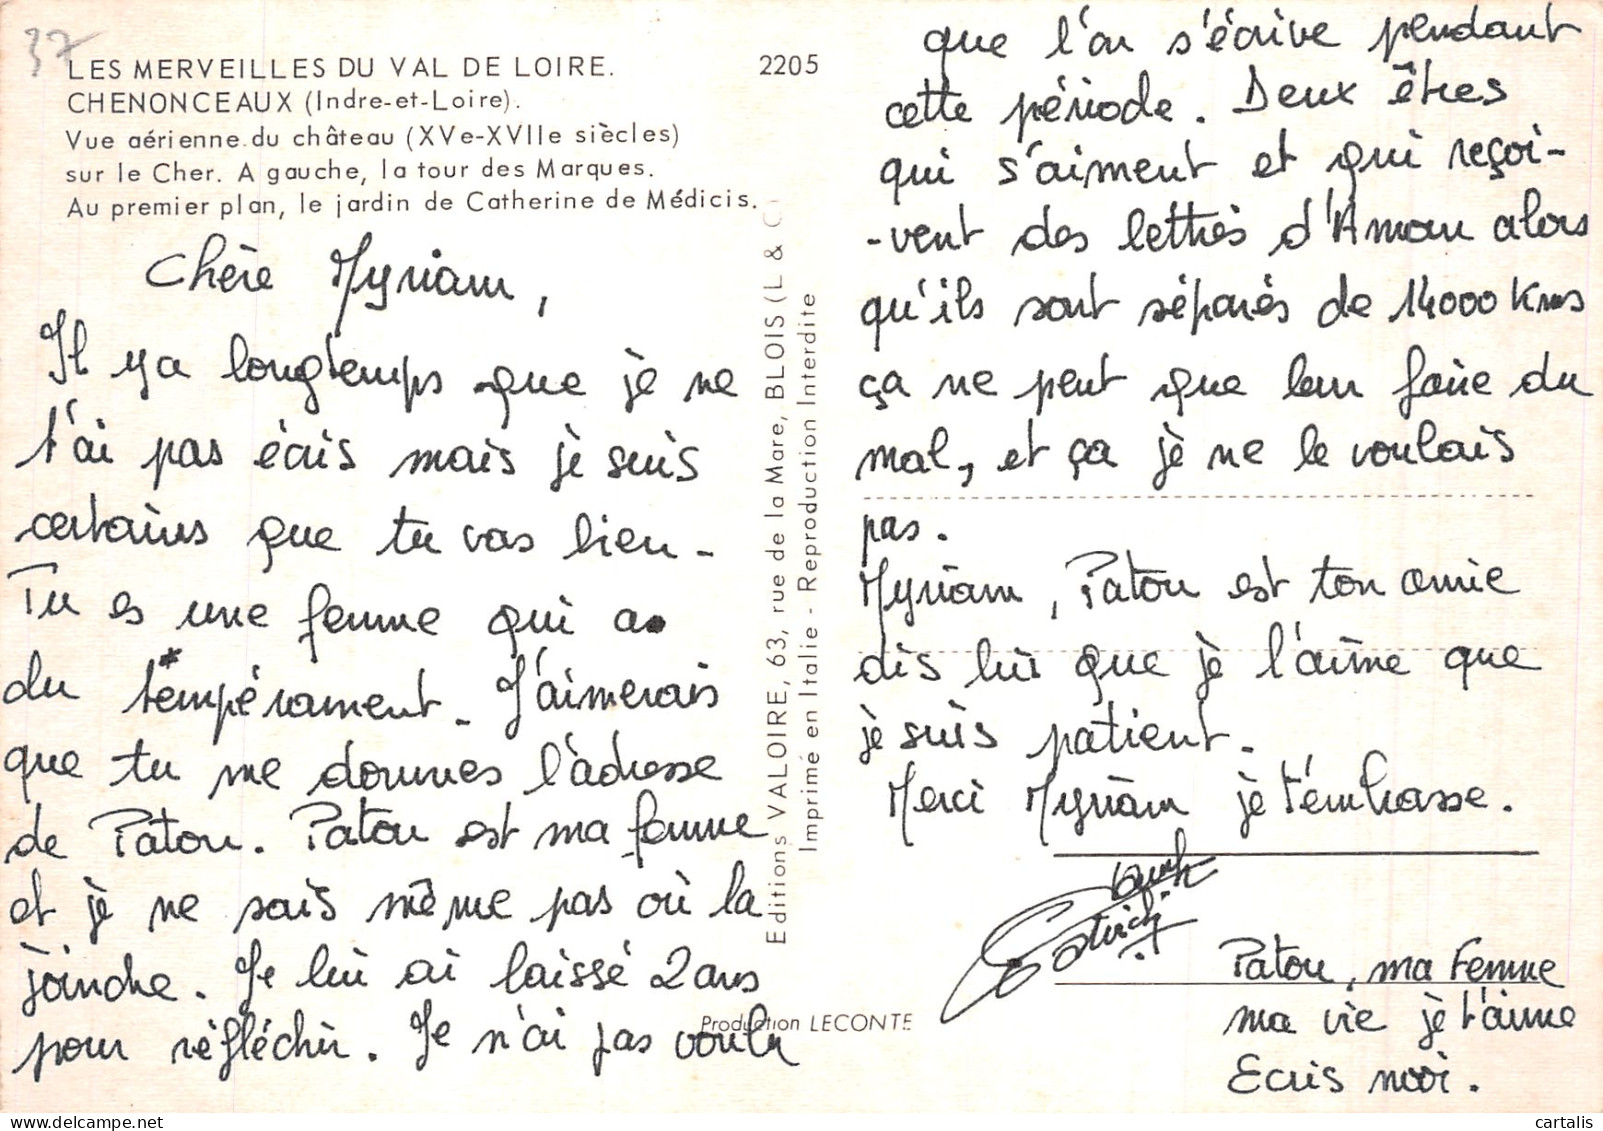 37
LES MERVEILLES DU VAL DE LOIRE. 2205
CHENONCEAUX (Indre-et-Loire).
Vue aérienne du château (XVe-XVIIe siècles)
sur le Cher. A gauche, la tour des Marques.
Au premier plan, le jardin de Catherine de Médicis.
Chère Myriam,
Il y a longtemps que je ne
t'ai pas écris mais je suis
certains que tu vas bien -
Tu es une femme qui a
du tempérament. J'aimerais
que tu me donnes l'adresse
de Patou. Patou est ma femme
et je ne sais même pas où la
joindre. Je lui ai laissé 2 ans
pour réfléchir. Je n'ai pas voulu
Editions VALOIRE, 63, rue de la Mare, BLOIS (L & C)
Imprimé en Italie - Reproduction Interdite
Production LECONTE
que l'on s'écrive pendant
cette période. Deux êtres
qui s'aiment et qui reçoi-
-vent des lettres d'Amour alors
qu'ils sont séparés de 14000 Kms
ça ne peut que leur faire du
mal, et ça je ne le voulais
pas.
Myriam, Patou est ton amie
dis lui que je l'aime que
je suis patient.
Merci Myriam je t'embrasse.
Patou, ma Femme
ma vie je t'aime
Ecris moi.
cartalis